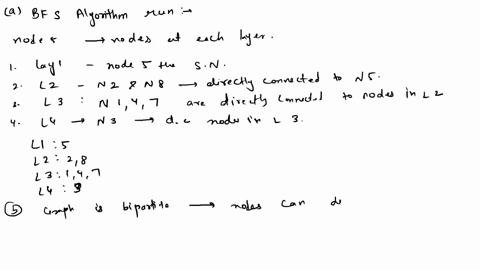 (a) BFS Algorithm run :-
node 5 → nodes at each layer.
1. Lay1 - node 5 the S.N.
2. L2 - N2 & N8 → directly connected to N5.
3. L3 : N1,4,7 are directly connected to nodes in L2
4. L4 → N3 → d.c node in L3.
L1 : 5
L2 : 2,8
L3 : 1,4,7
L4 : 3
(b) Graph is bipartite → nodes can d